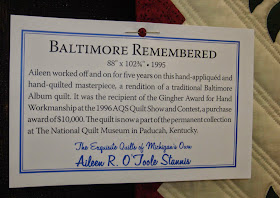 BALTIMORE REMEMBERED
88" x 102¾" • 1995
Aileen worked off and on for five years on this hand-appliquéd and
hand-quilted masterpiece, a rendition of a traditional Baltimore
Album quilt. It was the recipient of the Gingher Award for Hand
Workmanship at the 1996 AQS Quilt Show and Contest, a purchase
award of $10,000. The quilt is now a part of the permanent collection
at The National Quilt Museum in Paducah, Kentucky.
The Exquisite Quilts of Michigan's Own
Aileen R. O'Toole Stannis